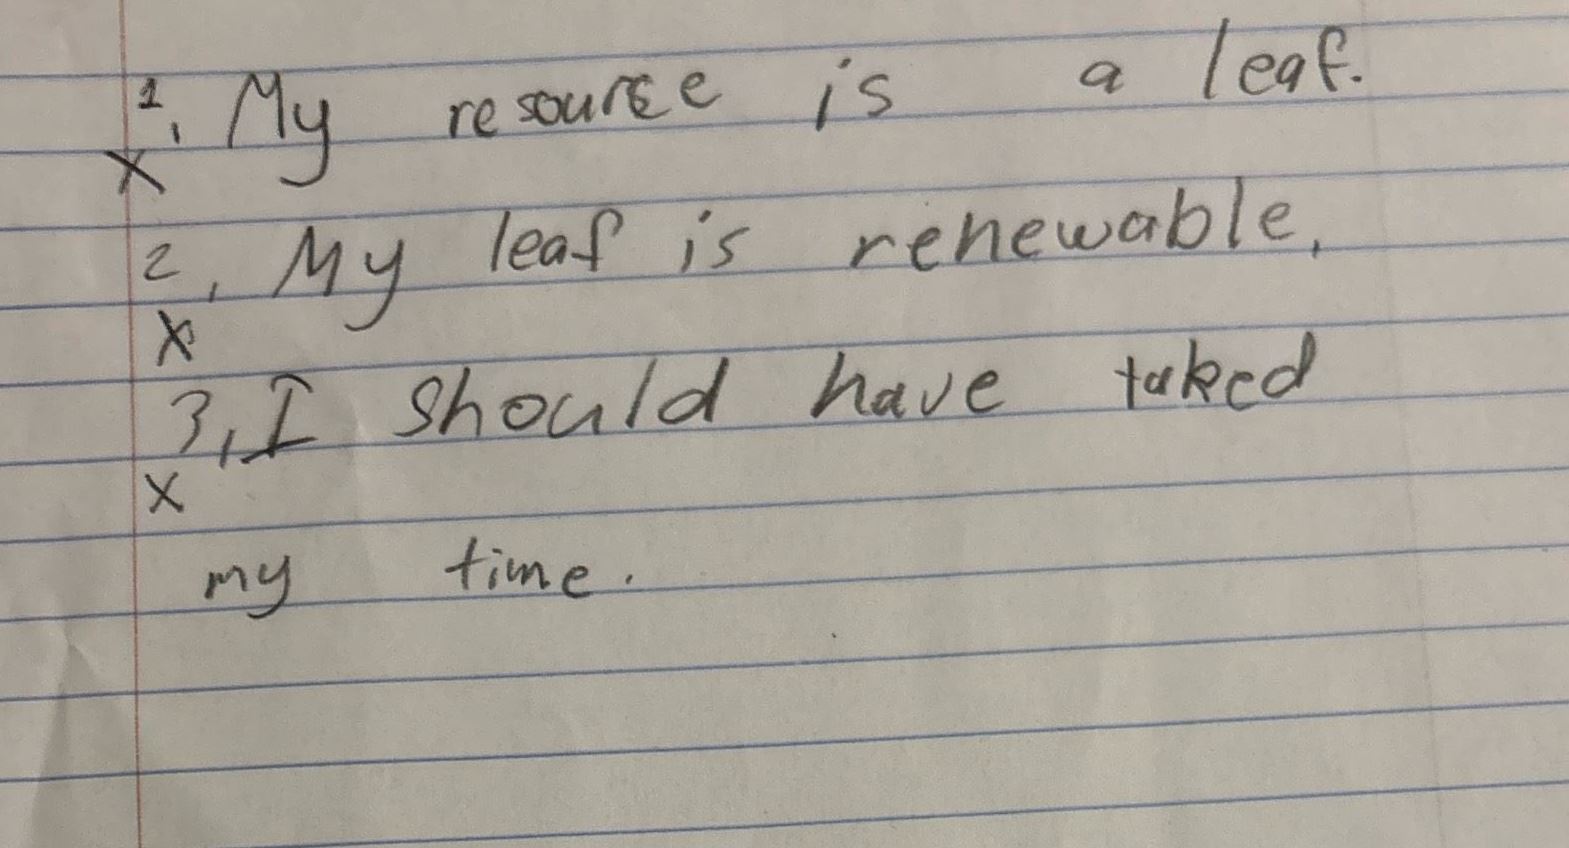 1. My resource is a leaf.
X
2. My leaf is renewable.
X
3. I should have taked
X
my time.